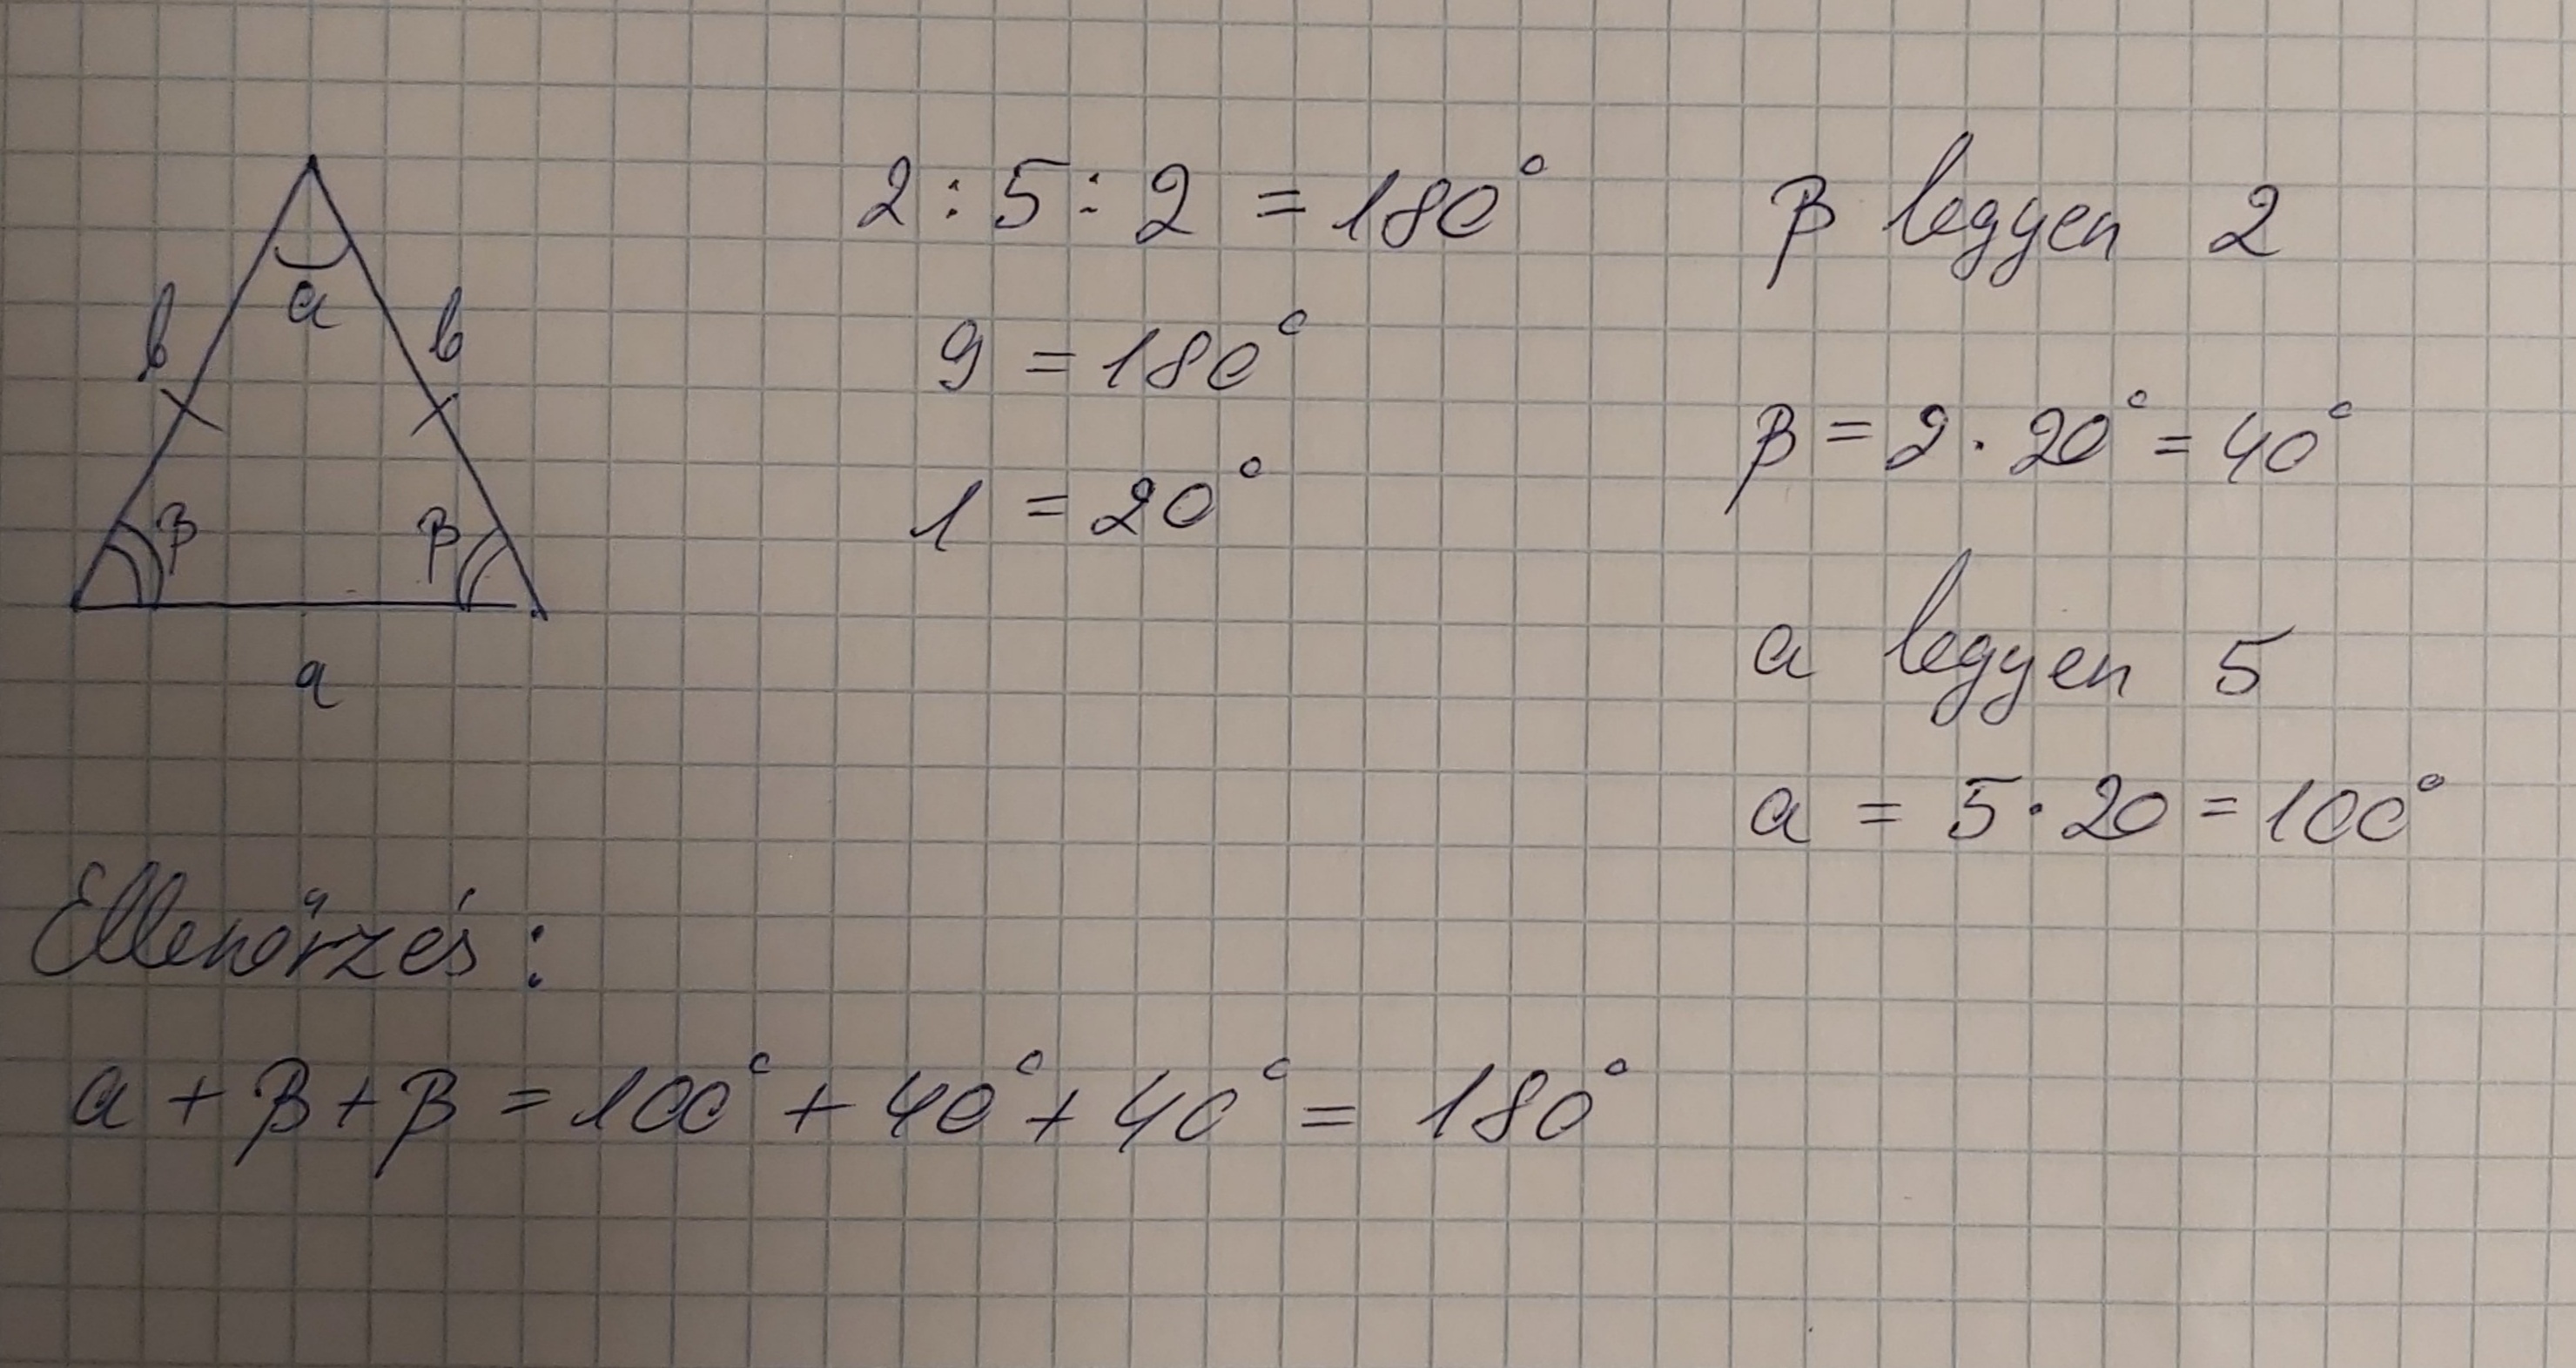 a
b
b
β
β
a
2 : 5 : 2 = 180°
9 = 180°
1 = 20°
β legyen 2
β = 2 · 20° = 40°
a legyen 5
a = 5 · 20 = 100°
Ellenőrzés :
a + β + β = 100° + 40° + 40° = 180°